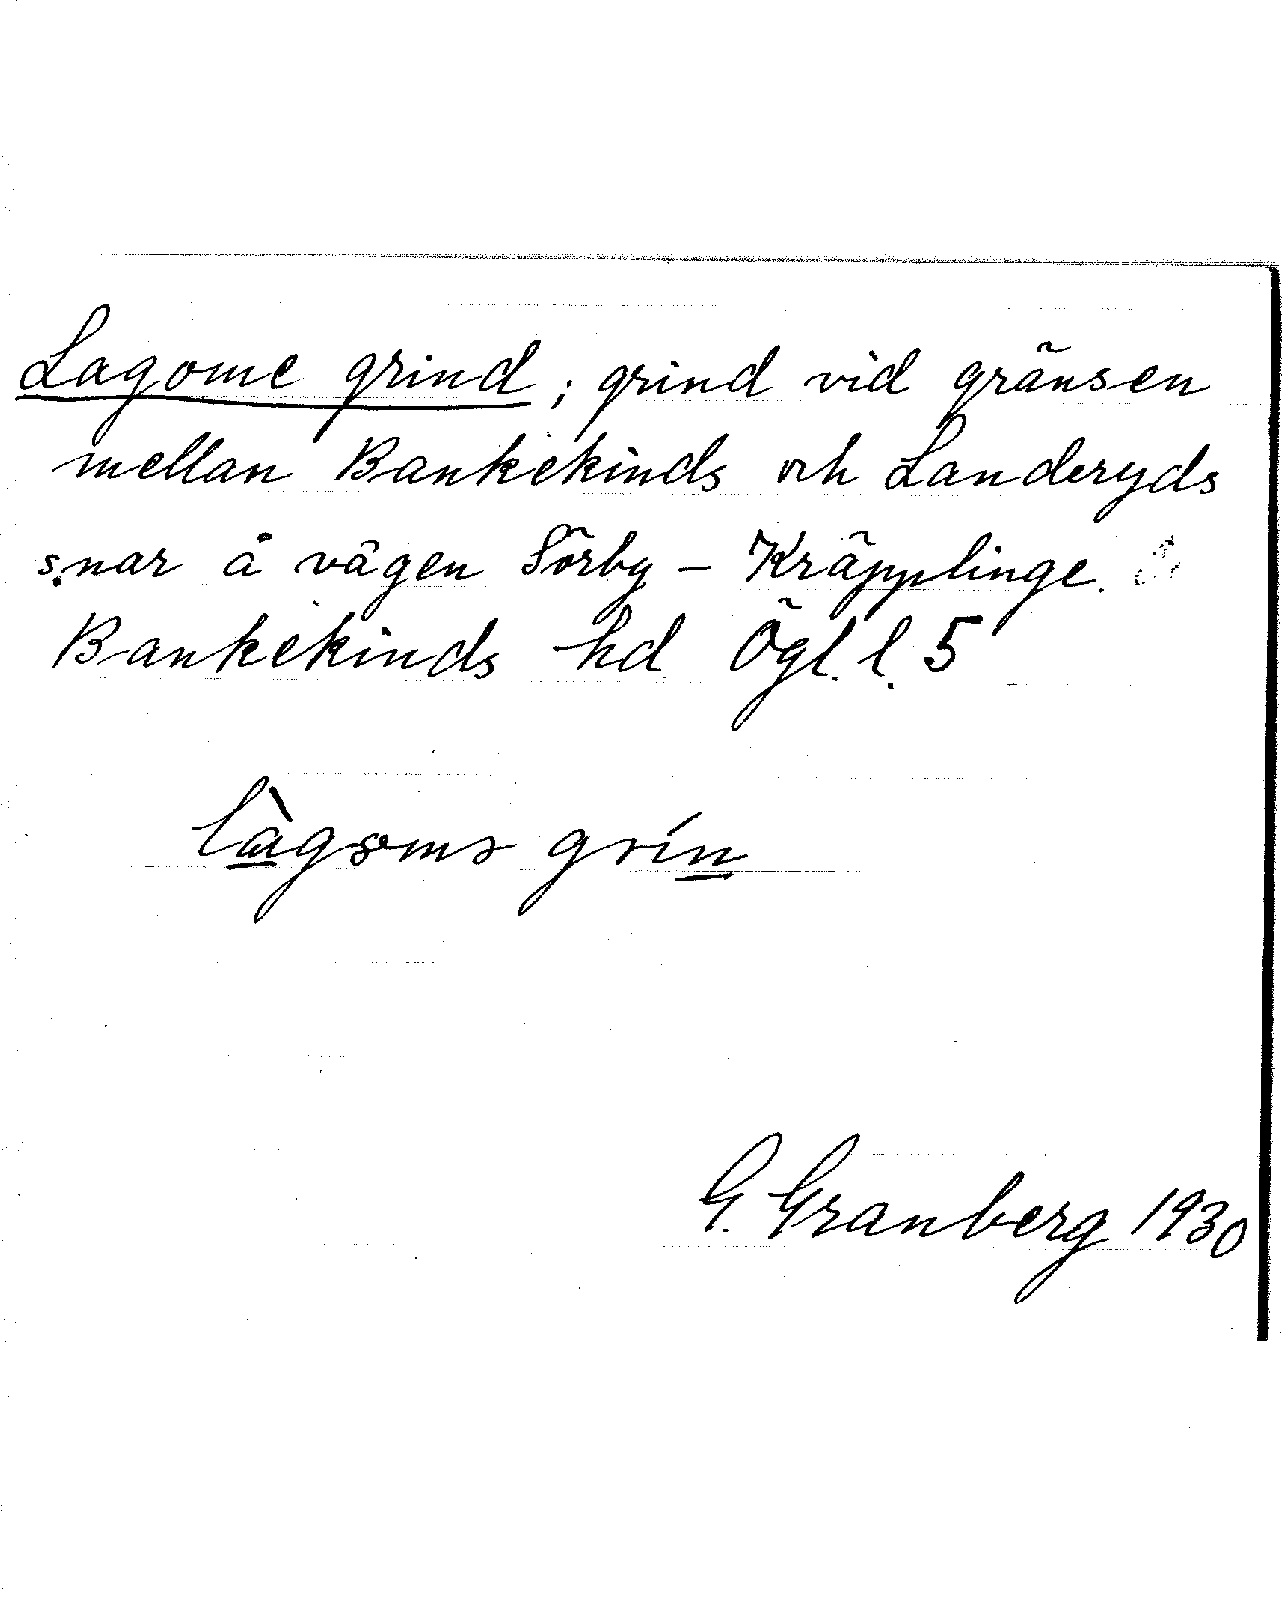 Lagome grind; grind vid gränsen
mellan Bankekinds och Landeryds
s:nar å vägen Sörby – Kräpplinge.
Bankekinds hd Ögl. l. 5
grin
G. Granberg 1930